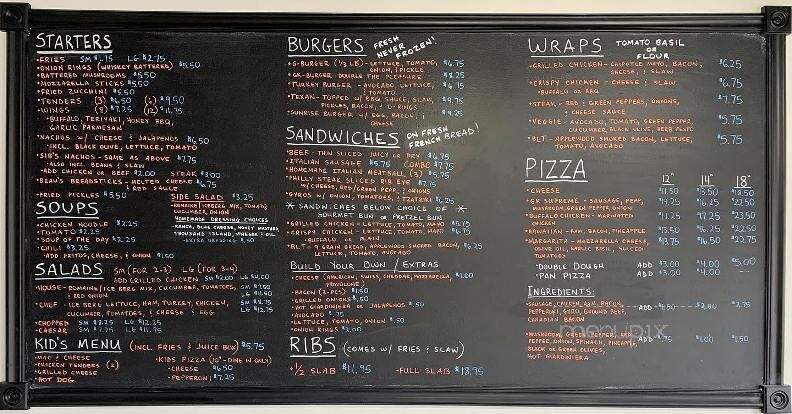 STARTERS
• FRIES SM $1.75 LG $2.75
• ONION RINGS (WHISKEY BATTERED) $5.50
• BATTERED MUSHROOMS $5.50
• MOZZARELLA STICKS $5.50
• FRIED ZUCCHINI $5.50
• TENDERS (3) $6.50 (6) $9.50
• WINGS (8) $7.25 (12) $14.75
• BUFFALO, TERIYAKI, HONEY BBQ,
GARLIC PARMESAN
• NACHOS W/ CHEESE & JALAPENOS $6.50
• INCL. BLACK OLIVE, LETTUCE, TOMATO
• SIB'S NACHOS - SAME AS ABOVE $7.75
• ALSO INCL. BEANS & SLAW
• ADD CHICKEN OR BEEF $2.00 STEAK $3.00
• BEAN'S BREADSTICKS - MELTED CHEESE $6.75
& RED SAUCE
• FRIED PICKLES $5.50
SOUPS
• CHICKEN NOODLE $2.25
• TOMATO $2.25
• SOUP OF THE DAY $2.25
• CHILI $3.25
• ADD FRITOS, CHEESE, & ONION $1.50
SIDE SALAD $3.25
• ROMAINE/ICEBERG MIX, TOMATO,
CUCUMBER, ONION
HOMEMADE DRESSING CHOICES
• RANCH, BLEU CHEESE, HONEY MUSTARD,
THOUSAND ISLAND, OIL
• EXTRA DRESSING $.50
SALADS SM (FOR 2-3) LG (FOR 3-4)
ADD GRILLED CHICKEN SM $2.00 LG $4.00
• HOUSE - ROMAINE/ICEBERG MIX, CUCUMBER, TOMATOES,
& RED ONION
• CHEF - ICEBERG LETTUCE, HAM, TURKEY, CHICKEN,
CUCUMBER, TOMATOES, & CHEESE & EGG
• CHOPPED SM $8.25 LG $12.25
• CAESAR SM LG
KID'S MENU (INCL. FRIES & JUICE BOX) $5.75
• MAC & CHEESE
• CHICKEN TENDERS (2)
• GRILLED CHEESE
• HOT DOG
• KIDS PIZZA (10" - DINE IN ONLY)
• CHEESE $6.50
• PEPPERONI $7.25
BURGERS FRESH NEVER FROZEN!
• G-BURGER (1/3 LB) - LETTUCE, TOMATO, $6.75
ONION, PICKLE
• GK-BURGER - DOUBLE THE PLEASURE $8.25
• TURKEY BURGER - AVOCADO, LETTUCE, $6.75
& TOMATO
• TEXAN - TOPPED W/ BBQ SAUCE, SLAW, $9.75
PICKLES, BACON, & O-RINGS
• SUNRISE BURGER W/ EGG, BACON, & $9.25
CHEESE
SANDWICHES ON FRESH FRENCH BREAD!
• BEEF - THIN SLICED JUICY OR DRY $6.75
• ITALIAN SAUSAGE $5.75 COMBO $7.75
• HOMEMADE ITALIAN MEATBALL (3) $5.75
• PHILLY STEAK SLICED RIB EYE $7.75
W/ CHEESE, RED/GREEN PEPP, & ONIONS
• GYROS W/ ONION, TOMATOES, & TZATZIKI $6.25
* SANDWICHES BELOW CHOICE OF
GOURMET BUN OR PRETZEL BUN
• GRILLED CHICKEN - LETTUCE, TOMATO, MAYO $5.75
• CRISPY CHICKEN - LETTUCE, TOMATO, MAYO $6.75
• BUFFALO OR PLAIN
• BLT - 9 GRAIN BREAD, APPLEWOOD SMOKED BACON, $6.25
LETTUCE, TOMATO
BUILD YOUR OWN / EXTRAS
• CHEESE (AMERICAN, SWISS, CHEDDAR, MOZZARELLA, $1.00
PROVOLONE)
• BACON (2-PCS) $1.50
• GRILLED ONIONS $.50
• HOT GIARDINIERA OR JALAPENOS $.50
• AVOCADO $.75
• LETTUCE, TOMATO, ONION $.50
• ONION RINGS $2.00
RIBS (COMES W/ FRIES & SLAW)
• 1/2 SLAB $11.95 • FULL SLAB $18.95
WRAPS TOMATO BASIL
OR
FLOUR
• GRILLED CHICKEN - CHIPOTLE MAYO, BACON, $6.25
CHEESE, & SLAW
• CRISPY CHICKEN - CHEESE & SLAW $6.75
• BUFFALO OR BBQ
• STEAK - RED & GREEN PEPPERS, ONIONS, $7.75
& CHEESE SAUCE
• VEGGIE - AVOCADO, TOMATO, GREEN PEPPER, $5.75
CUCUMBER, BLACK OLIVE, HERB PESTO
• BLT - APPLEWOOD SMOKED BACON, LETTUCE, $5.75
TOMATO, AVOCADO
PIZZA 12" 14" 18"
• CHEESE $11.50 $13.50 $18.50
• GK SUPREME - SAUSAGE, PEPP, $22.50
MUSHROOM, GREEN PEPPER, ONION
• BUFFALO CHICKEN - MARINATED $23.50
CHICKEN
• HAWAIIAN - HAM, BACON, PINEAPPLE $13.50 $16.25 $22.50
• MARGARITA - MOZZARELLA CHEESE, $13.75 $16.50 $22.75
OLIVE OIL, GARLIC, BASIL,
& TOMATOES
• DOUBLE DOUGH ADD $3.00 $4.00 $5.00
• PAN PIZZA ADD $3.00 $4.00
INGREDIENTS:
• SAUSAGE, CHICKEN, HAM, BACON, ADD $2.75
PEPPERONI, GYRO, GROUND BEEF,
CANADIAN BACON
• MUSHROOM, GREEN PEPPER, RED ADD $.75
PEPPER, ONION, SPINACH, PINEAPPLE,
BLACK OR GREEN OLIVES,
HOT GIARDINIERA
menupix